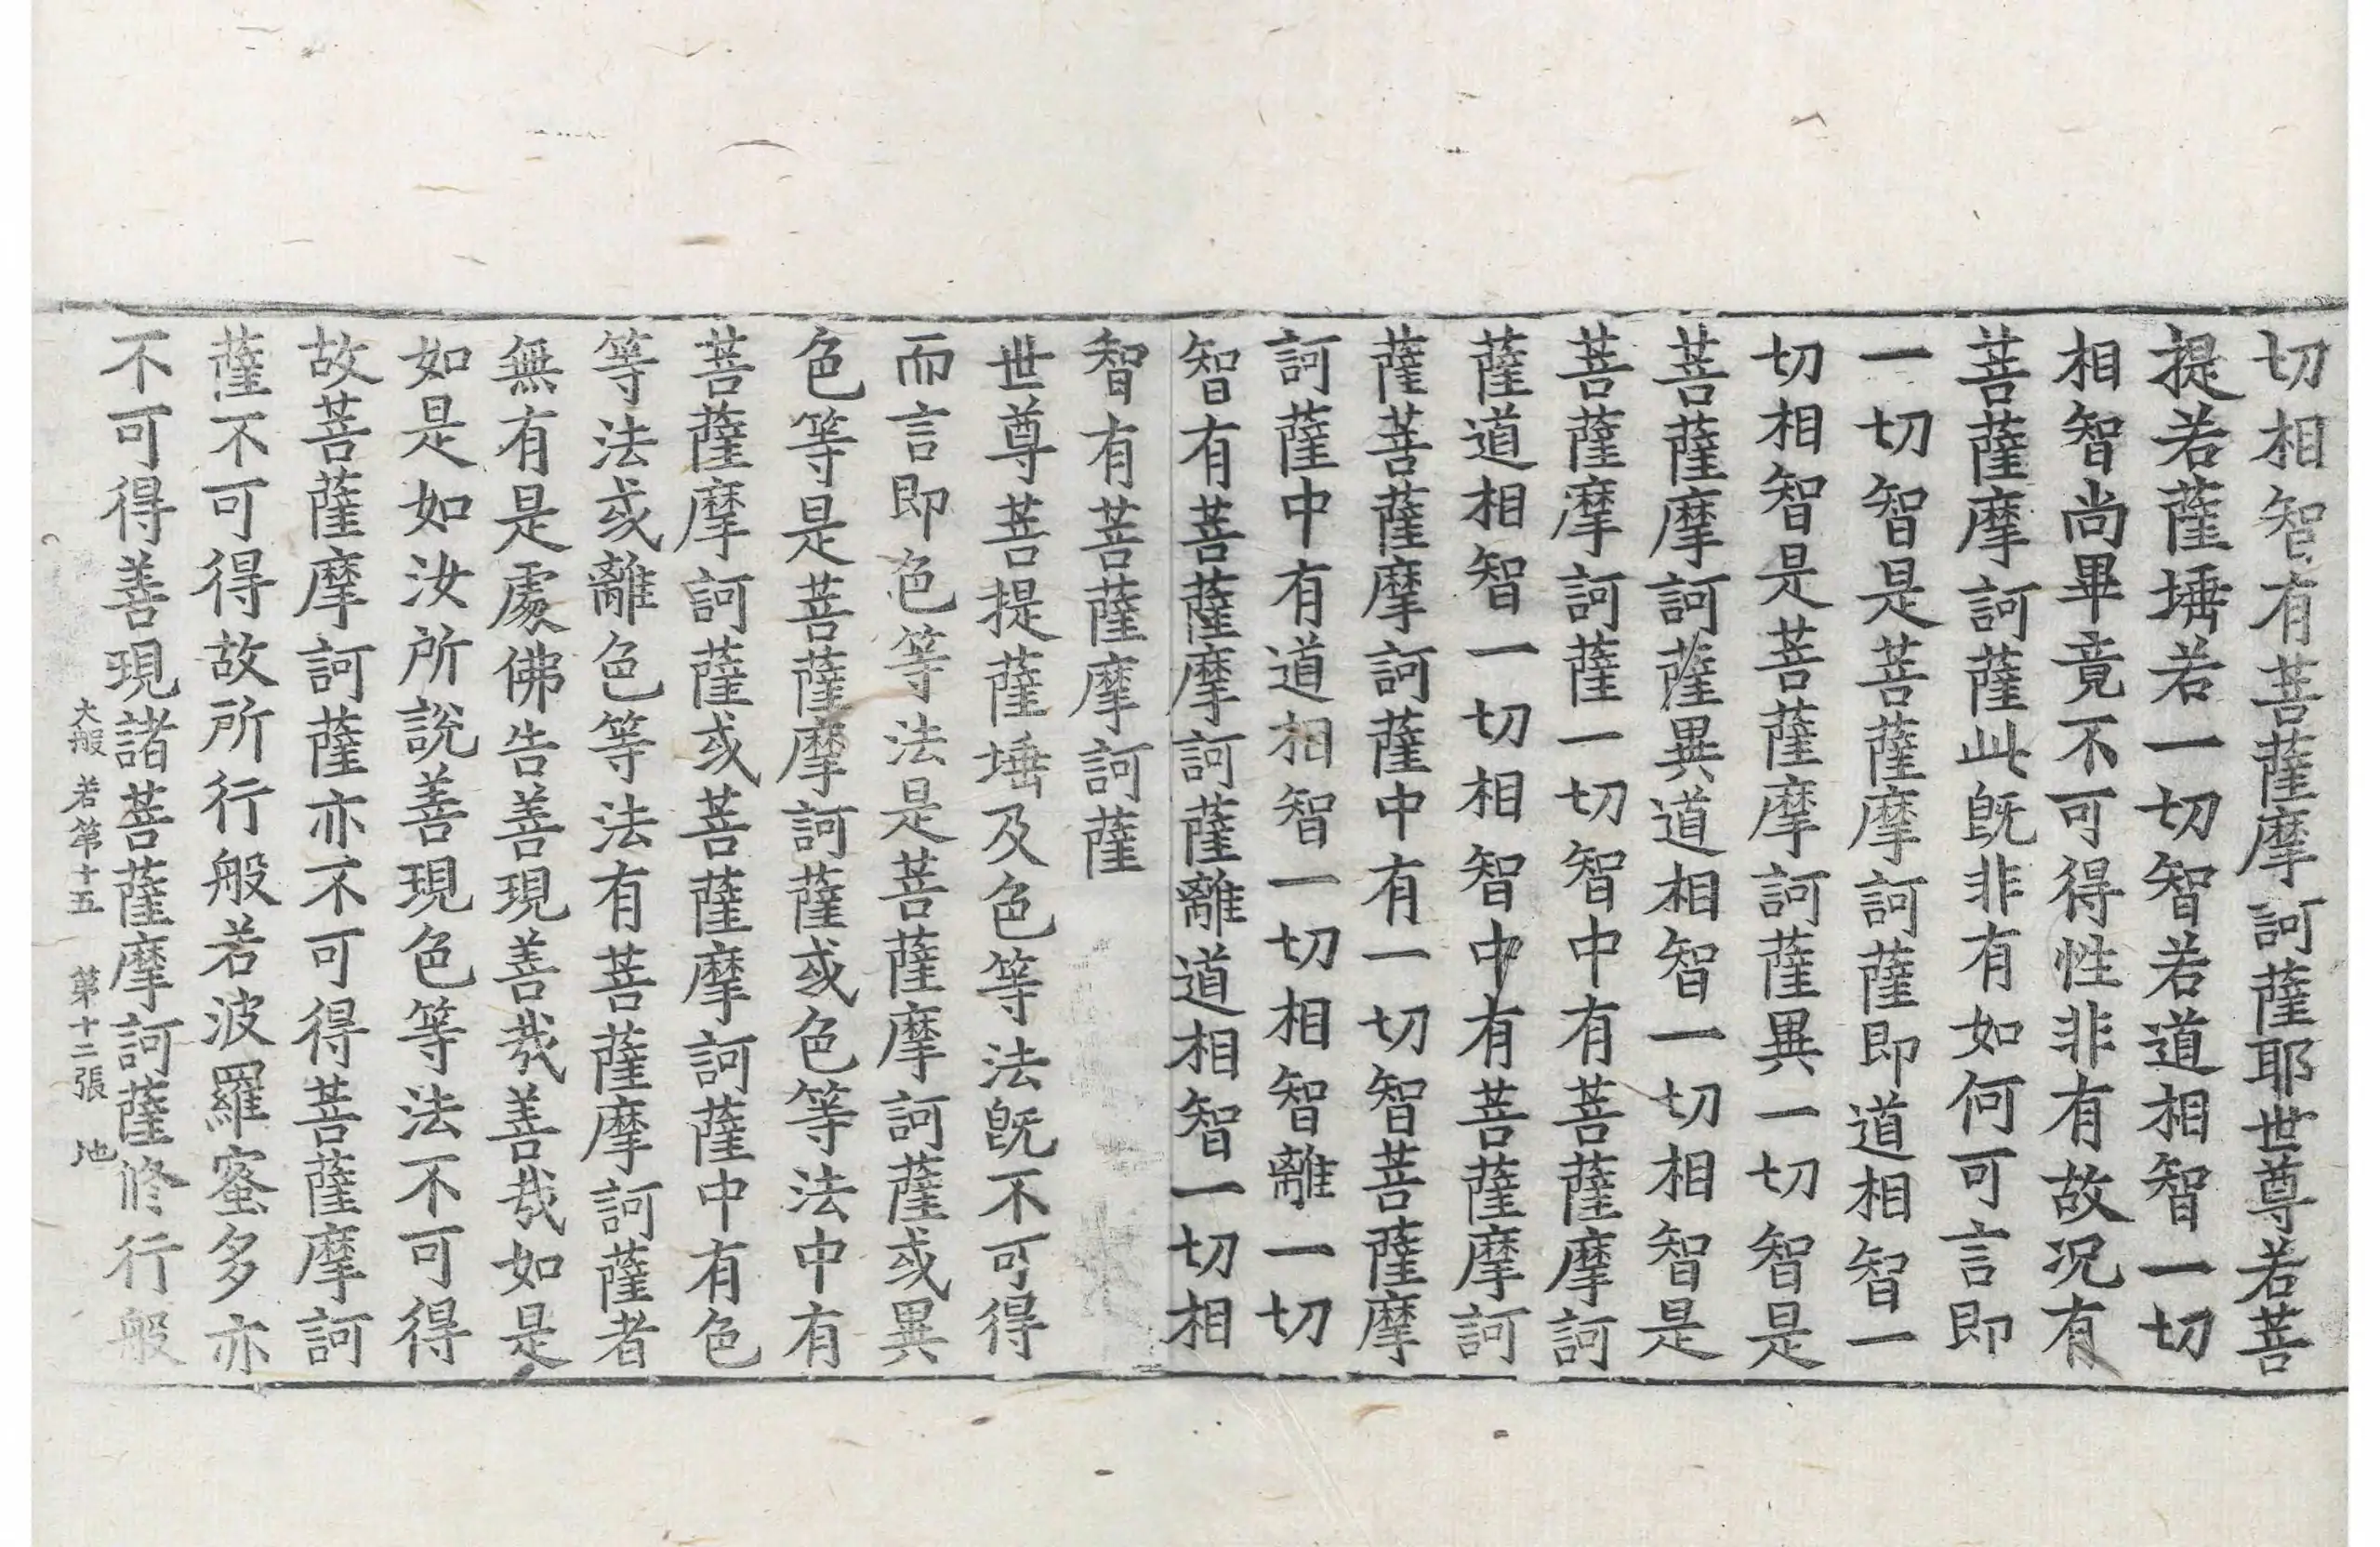 切相智有菩薩摩訶薩耶世尊若菩
提若薩埵若一切智若道相智一切
相智尚畢竟不可得性非有故況有
菩薩摩訶薩此旣非有如何可言即
一切智是菩薩摩訶薩即道相智一
切相智是菩薩摩訶薩異一切智是
菩薩摩訶薩異道相智一切相智是
菩薩摩訶薩一切智中有菩薩摩訶
薩道相智一切相智中有菩薩摩訶
薩菩薩摩訶薩中有一切智菩薩摩
訶薩中有道相智一切相智離一切
智有菩薩摩訶薩離道相智一切相
智有菩薩摩訶薩
世尊菩提薩埵及色等法旣不可得
而言即色等法是菩薩摩訶薩或異
色等是菩薩摩訶薩或色等法中有
菩薩摩訶薩或菩薩摩訶薩中有色
等法或離色等法有菩薩摩訶薩者
無有是處佛告善現善哉善哉如是
如是如汝所說善現色等法不可得
故菩薩摩訶薩亦不可得菩薩摩訶
薩不可得故所行般若波羅蜜多亦
不可得善現諸菩薩摩訶薩修行般
大般若第十五 第十二張 地